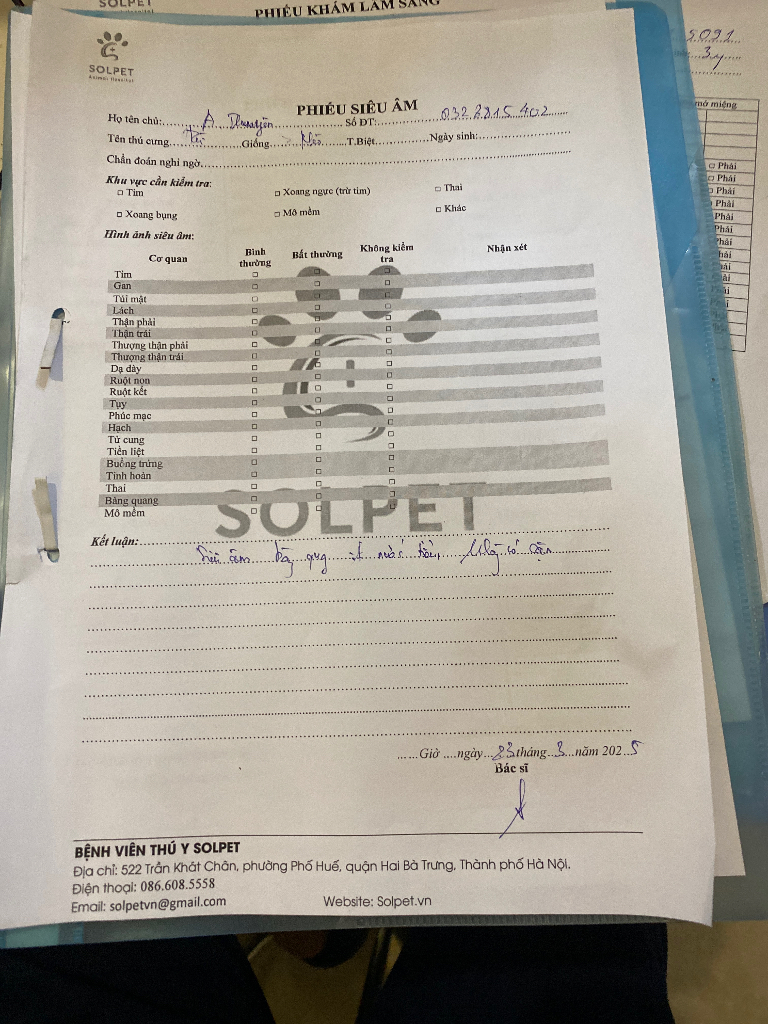 SOLPET
PHIẾU KHÁM LÂM SÀNG
5091
3y
mở miệng
□ Phải
□ Phải
□ Phải
□ Phải
Phải
Phải
SOLPET
Animal Hospital
PHIẾU SIÊU ÂM
Họ tên chủ: A Số ĐT: 0322815402
Tên thú cưng Giống T.Biệt Ngày sinh:
Chẩn đoán nghi ngờ
Khu vực cần kiểm tra:
□ Tim □ Xoang ngực (trừ tim) □ Thai
□ Xoang bụng □ Mô mềm □ Khác
Hình ảnh siêu âm:
Cơ quan Bình thường Bất thường Không kiểm tra Nhận xét
Tim □ □ □
Gan □ □ □
Túi mật □ □ □
Lách □ □ □
Thận phải □ □ □
Thận trái □ □ □
Thượng thận phải □ □ □
Thượng thận trái □ □ □
Dạ dày □ □ □
Ruột non □ □ □
Ruột kết □ □ □
Tụy □ □ □
Phúc mạc □ □ □
Hạch □ □ □
Tử cung □ □ □
Tiền liệt □ □ □
Buồng trứng □ □ □
Tinh hoàn □ □ □
Thai □ □ □
Bàng quang □ □ □
Mô mềm □ □ □
SOLPET
Kết luận:
Siêu âm bàng quang ít nước tiểu, có cặn
Giờ ngày 23 tháng 3 năm 2025
Bác sĩ
BỆNH VIÊN THÚ Y SOLPET
Địa chỉ: 522 Trần Khát Chân, phường Phố Huế, quận Hai Bà Trưng, Thành phố Hà Nội.
Điện thoại: 086.608.5558
Email: solpetvn@gmail.com Website: Solpet.vn